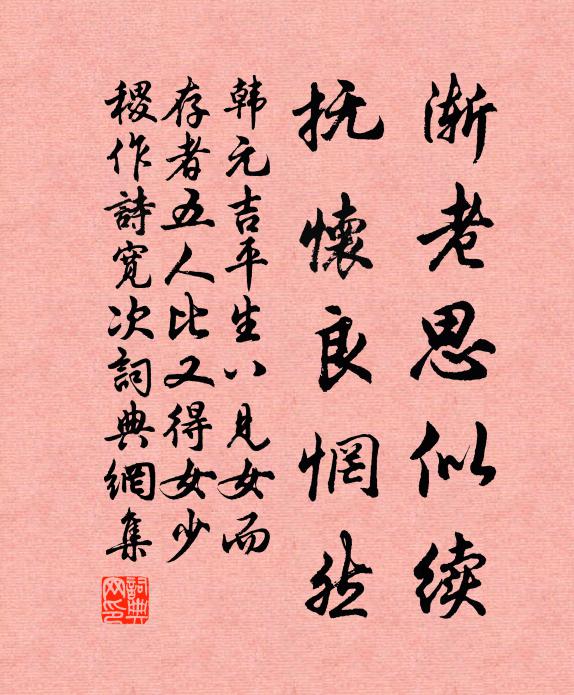 渐老思似续
抚怀良惘然
韩元吉平生八见女而
存者五人比又得女少
稷作詩寛次詞典網集
詞典網印